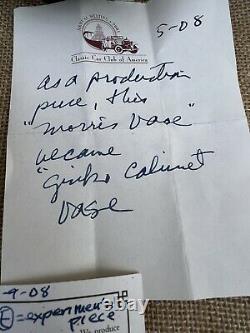 Classic Car Club of America
5-08
as a production
piece, this
"Morris Vase"
became
"Ginko Cabinet
Vase
-9-08
E = experimen
piece
We produce